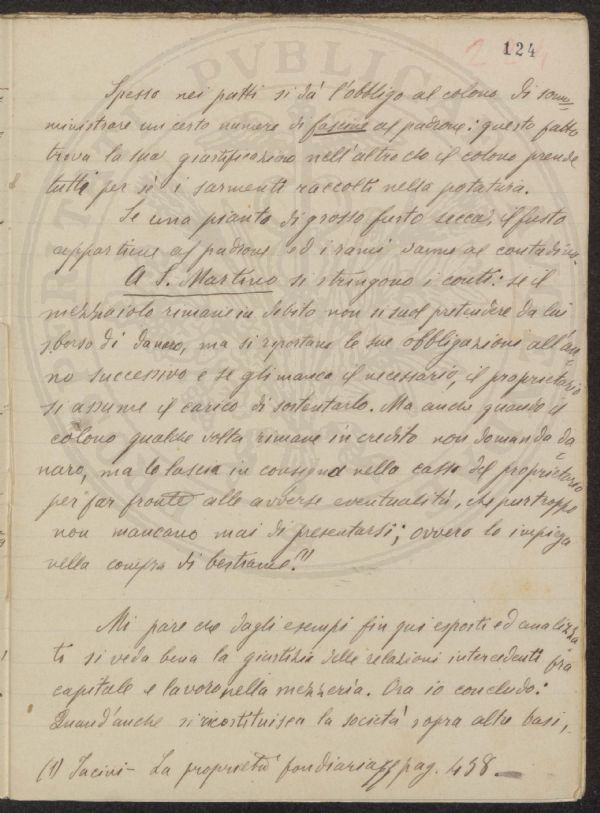 124
Spesso nei patti si dà l'obbligo al colono di som=
ministrare un certo numero di fascine al padrone: questo fatto
trova la sua giustificazione nell'altro che il colono prende
tutti per sè i sarmenti raccolti nella potatura.
Se una pianta di grosso fusto secca, il fusto
appartiene al padrone ed i rami vanno al contadino.
A S. Martino si stringono i conti: se il
mezzaiolo rimane in debito non si suol pretendere da lui
sborso di danaro, ma si riportano le sue obbligazioni all'an=
no successivo e se gli manca il necessario, il proprietario
si assume il carico di sostentarlo. Ma anche quando il
colono qualche volta rimane in credito non domanda da=
naro, ma lo lascia in consegna nella cassa del proprietario
per far fronte alle avverse eventualità, che purtroppo
non mancano mai di presentarsi; ovvero lo impiega
nella compra di bestiame. (1)
Mi pare che dagli esempi fin qui esposti ed analizza
ti si veda bene la giustizia delle relazioni intercedenti fra
capitale e lavoro nella mezzeria. Ora io concludo:
Quand'anche si ricostituisca la società sopra altre basi,
(1) Jacini - La proprietà fondiaria pag. 458.